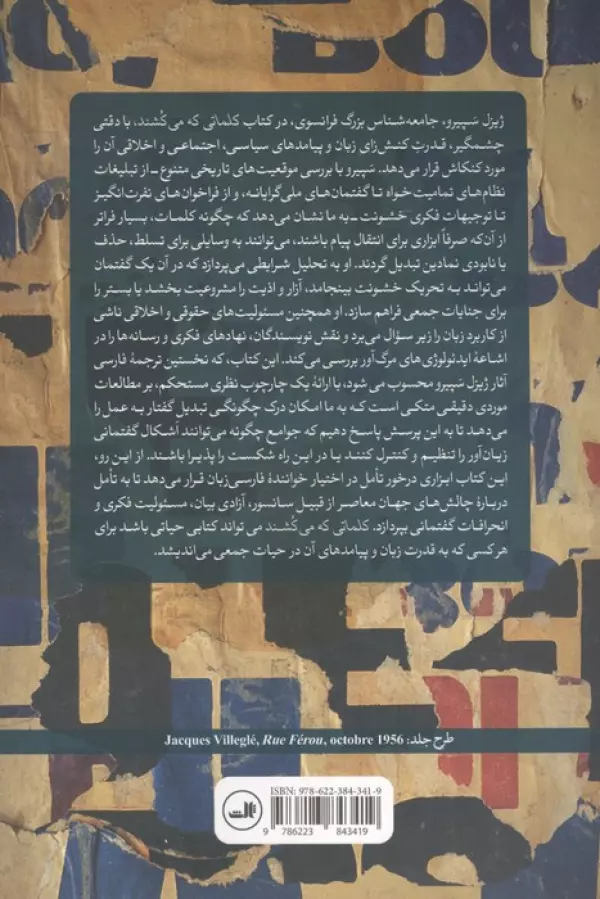 BOU
ژیزل سَپیرو، جامعه‌شناس بزرگ فرانسوی، در کتاب کلماتی که می‌کُشند، با دقتی
چشمگیر، قدرتِ کنش‌زای زبان و پیامدهای سیاسی، اجتماعی و اخلاقی آن را
مورد کنکاش قرار می‌دهد. سَپیرو با بررسی موقعیت‌های تاریخی متنوع ـ از تبلیغات
نظام‌های تمامیت خواه تا گفتمان‌های ملی‌گرایانه، و از فراخوان‌های نفرت‌انگیز
تا توجیهات فکری خشونت ـ به ما نشان می‌دهد که چگونه کلمات، بسیار فراتر
از آن‌که صرفاً ابزاری برای انتقال پیام باشند، می‌توانند به وسایلی برای تسلط، حذف
یا نابودی نمادین تبدیل گردند. او به تحلیل شرایطی می‌پردازد که در آن یک گفتمان
می‌تواند به تحریک خشونت بینجامد، آزار و اذیت را مشروعیت بخشد یا بستر را
برای جنایات جمعی فراهم سازد. او همچنین مسئولیت‌های حقوقی و اخلاقی ناشی
از کاربرد زبان را زیر سؤال می‌برد و نقش نویسندگان، نهادهای فکری و رسانه‌ها را در
اشاعهٔ ایدئولوژی‌های مرگ‌آور بررسی می‌کند. این کتاب، که نخستین ترجمهٔ فارسی
آثار ژیزل سَپیرو محسوب می شود، با ارائهٔ یک چارچوب نظری مستحکم، بر مطالعات
موردی دقیقی متکی است که به ما امکان درک چگونگی تبدیل گفتار به عمل را
می‌دهد تا به این پرسش پاسخ دهیم که جوامع چگونه می‌توانند اَشکال گفتمانی
زیان‌آور را تنظیم و کنترل کنند یا در این راه شکست را پذیرا باشند. از این رو،
این کتاب ابزاری درخور تأمل در اختیار خوانندهٔ فارسی‌زبان قرار می‌دهد تا به تأمل
دربارهٔ چالش‌های جهان معاصر از قبیل سانسور، آزادی بیان، مسئولیت فکری و
انحرافات گفتمانی بپردازد. کلماتی که می‌کُشند می تواند کتابی حیاتی باشد برای
هرکسی که به قدرت زبان و پیامدهای آن در حیات جمعی می‌اندیشد.
طرح جلد: Jacques Villeglé, Rue Férou, octobre 1956
ISBN: 978-622-384-341-9
ثالث
9 786223 843419